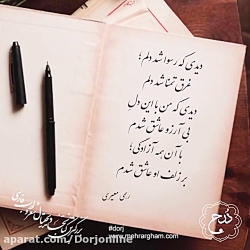 دیدی که رسوا شد دلم؛
غرق تمنا شد دلم
دیدی که من با این دل
بی آرزو عاشق شدم
با آن همه آزادگی؛
بر زلف او عاشق شدم
رهی معیری
دُرج
#dorj
www.mehrargham.com
aparat.com/Dorjonline